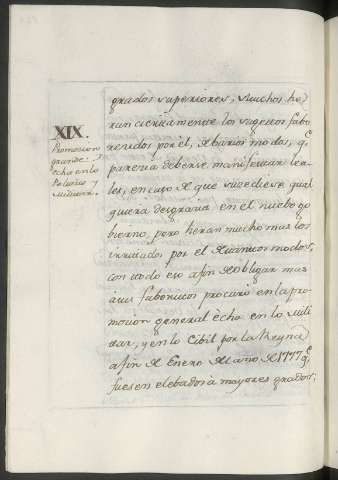 XIX.
Promocion
grande
echa en lo
Politico y
Militar.
grados superiores, Muchos he
ran ciertamente los sugettos fabo
residos por el, de barios modos, q.e
parecia deberse manifestar lea
les, en caso de que susediese qual
quiera desgracia en el nuebo go
bierno, pero heran mucho mas los
irritados por el de tantos modos,
con todo eso afin de obligar mas
a sus faboritos procuró en la pro
mocion general echa en lo Mili
tar, y en lo Cibil por la Reyna
afin de Enero del año de 1777 q.e
fuesen elebados a mayores grados;